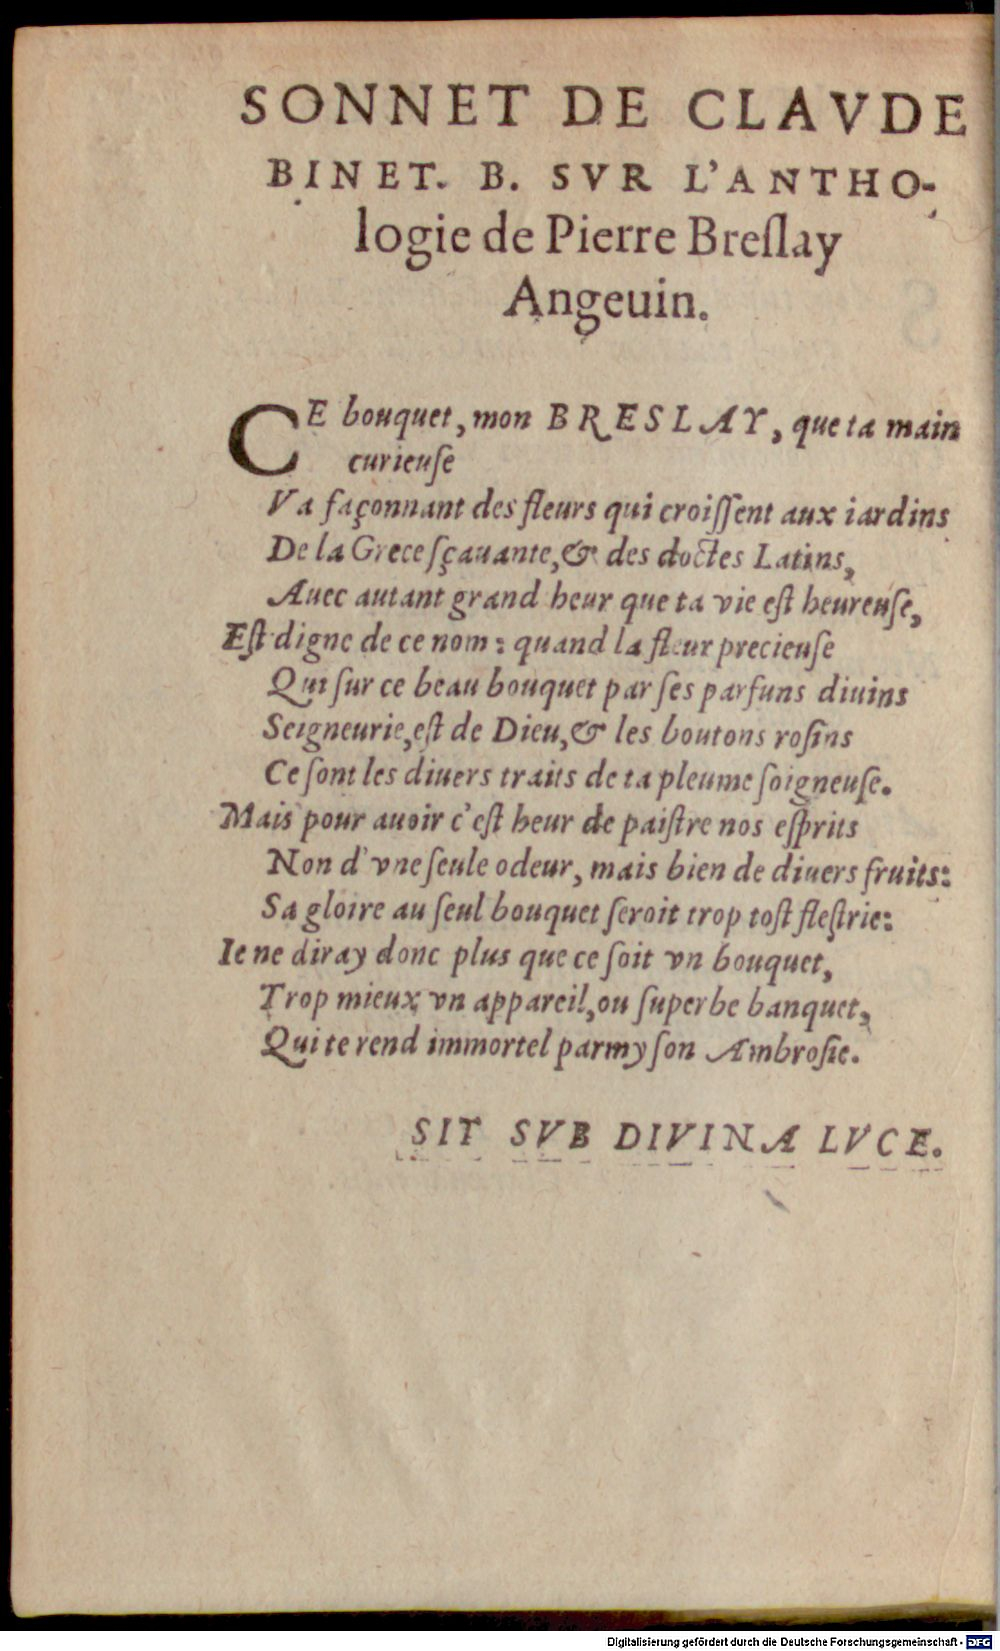 SONNET DE CLAVDE
BINET. B. SVR L'ANTHO-
logie de Pierre Breſlay
Angeuin.
CE bouquet, mon BRESLAY, que ta main
curieuſe
Va façonnant des fleurs qui croiſſent aux iardins
De la Grece ſçauante, & des doctes Latins,
Auec autant grand heur que ta vie eſt heureuſe,
Eſt digne de ce nom: quand la fleur precieuſe
Qui ſur ce beau bouquet par ſes parfuns diuins
Seigneurie, eſt de Dieu, & les boutons roſins
Ce ſont les diuers traits de ta pleume ſoigneuſe.
Mais pour auoir c'eſt heur de paiſtre nos eſprits
Non d'vne ſeule odeur, mais bien de diuers fruits:
Sa gloire au ſeul bouquet ſeroit trop toſt fleſtrie:
Ie ne diray donc plus que ce ſoit vn bouquet,
Trop mieux vn appareil, ou ſuperbe banquet,
Qui te rend immortel parmy ſon Ambroſie.
SIT SVB DIVINA LVCE.
Digitalisierung gefördert durch die Deutsche Forschungsgemeinschaft - DFG